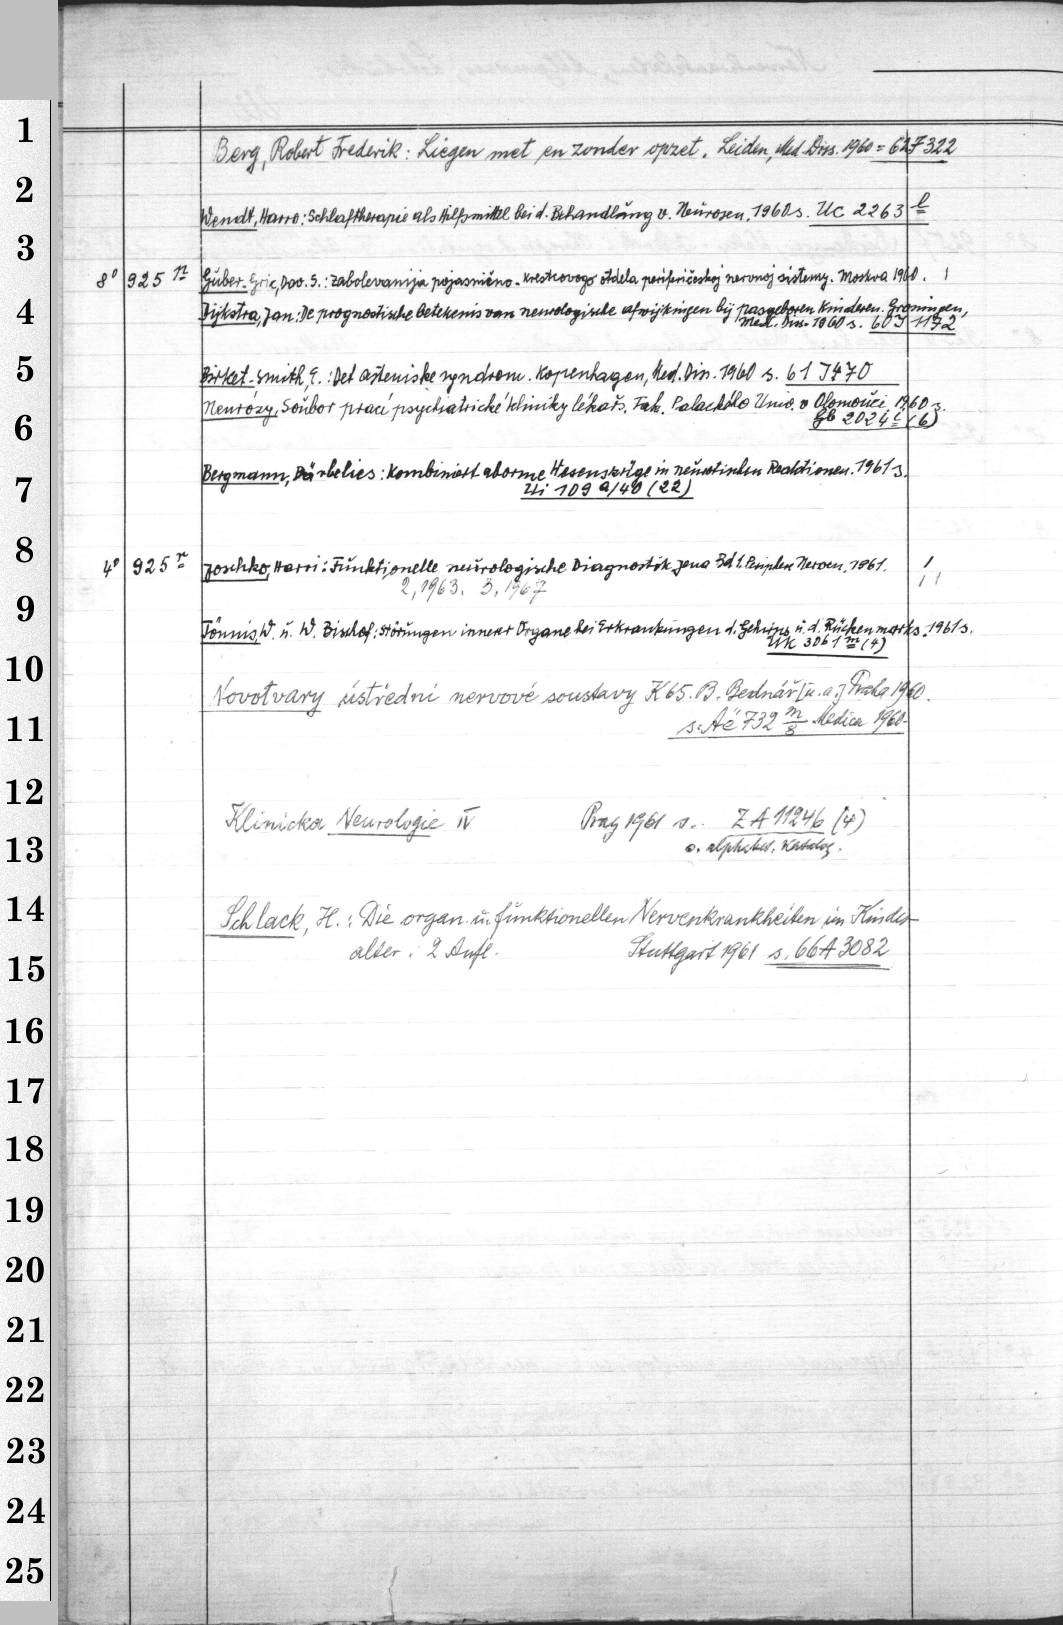 1
Berg, Robert Frederik: Liegen met en zonder opzet. Leiden, Med. Diss. 1960 = 627322
2
Wendt, Harro: Schlaftherapie als Hilfsmittel bei d. Behandlung v. Neurosen. 1960 s. Uc 2263 l
3
8° 925 n Guber-Gric, Dav. S.: Zabolevanija pojasnično-krestcovogo otdela periferičeskoj nervnoj sistemy. Moskva 1960. 1
4
Dijkstra, Jan: De prognostische betekenis van neurologische afwijkingen bij pasgeboren kinderen. Groningen,
Med. Diss. 1960 s. 60 J 1172
5
Birket-Smith, E.: Det asteniske syndrom. Kopenhagen, Med. Diss. 1960 s. 61 J 470
Neurózy, Soubor prací psychiatrické kliniky lékař. Fak. Palackého Univ. v Olomouci 1960 s.
6
Gb 2024 (6)
Bergmann, Bärbelies: Kombiniert aborme Wesenszüge in neurotischen Reaktionen. 1961 s.
7
Ui 109 a/40 (22)
8
4° 925 r Joschko, Harri: Funktionelle neurologische Diagnostik Jena Bd 1. Periphere Nerven, 1961. 1
2, 1963. 3, 1967 1 1
9
Tönnis, W. u. W. Bischof: Störungen innerer Organe bei Erkrankungen d. Gehirns u. d. Rückenmarks. 1961 s.
Uk 3061 m (4)
10
Novotvary ústřední nervové soustavy K 65. B. Bednář [u. a.] Praha 1960.
11
s. Ač 732 m/8 Medica 1960.
12
Klinicka Neurologie IV Prag 1961 s. ZA 11246 (4)
13
s. alphabet. Katalog.
14
Schlack, H.: Die organ. u. funktionellen Nervenkrankheiten im Kindes-
15
alter: 2 Aufl. Stuttgart 1961 s. 66 A 3082
16
17
18
19
20
21
22
23
24
25